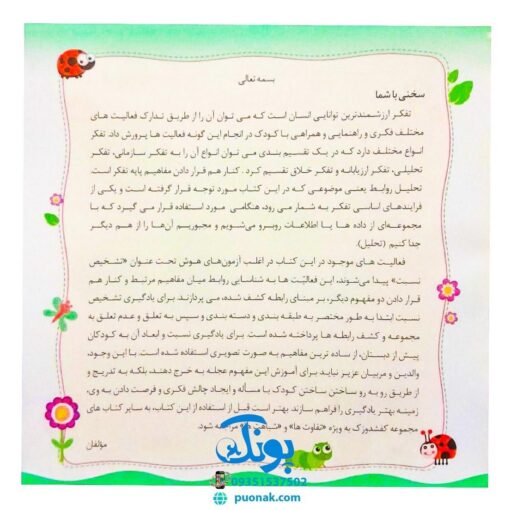 بسمه تعالی
سخنی با شما
تفکر ارزشمندترین توانایی انسان است که می توان آن را از طریق تدارک فعالیت های
مختلف فکری و راهنمایی و همراهی با کودک در انجام این گونه فعالیت ها پرورش داد. تفکر
انواع مختلف دارد که در یک تقسیم بندی می توان انواع آن را به تفکر سازمانی، تفکر
تحلیلی، تفکر ارزیابانه و تفکر خلاق تقسیم کرد. کنار هم قرار دادن مفاهیم پایه تفکر است.
تحلیل روابط یعنی موضوعی که در این کتاب مورد توجه قرار گرفته است و یکی از
فرایندهای اساسی تفکر به شمار می رود، هنگامی مورد استفاده قرار می گیرد که با
مجموعه‌ای از داده ها یا اطلاعات روبرو می‌شویم و مجبوریم آن‌ها را از هم دیگر
جدا کنیم (تحلیل).
فعالیت های موجود در این کتاب در اغلب آزمون‌های هوش تحت عنوان «تشخیص
نسبت» پیدا می‌شوند، این فعالیّت ها به شناسایی روابط میان مفاهیم مرتبط و کنار هم
قرار دادن دو مفهوم دیگر، بر مبنای رابطه کشف شده، می پردازند. برای یادگیری تشخیص
نسبت ابتدا به طور مختصر به طبقه بندی و دسته بندی و سپس به تعلق و عدم تعلق به
مجموعه و کشف رابطه ها پرداخته شده است. برای یادگیری نسبت و ابعاد آن به کودکان
پیش از دبستان، از ساده ترین مفاهیم به صورت تصویری استفاده شده است. با این وجود،
والدین و مربیان عزیز نباید برای آموزش این مفهوم عجله به خرج دهند، بلکه به تدریج و
از طریق رو به رو ساختن ساختن کودک با مسأله و ایجاد چالش فکری و فرصت دادن به وی،
زمینه بهتر یادگیری را فراهم سازند. بهتر است قبل از استفاده از این کتاب، به سایر کتاب های
مجموعه کفشدوزک به ویژه «تفاوت ها» و «شباهت ها» مراجعه شود.
مؤلفان
پونک
09351537502
puonak.com